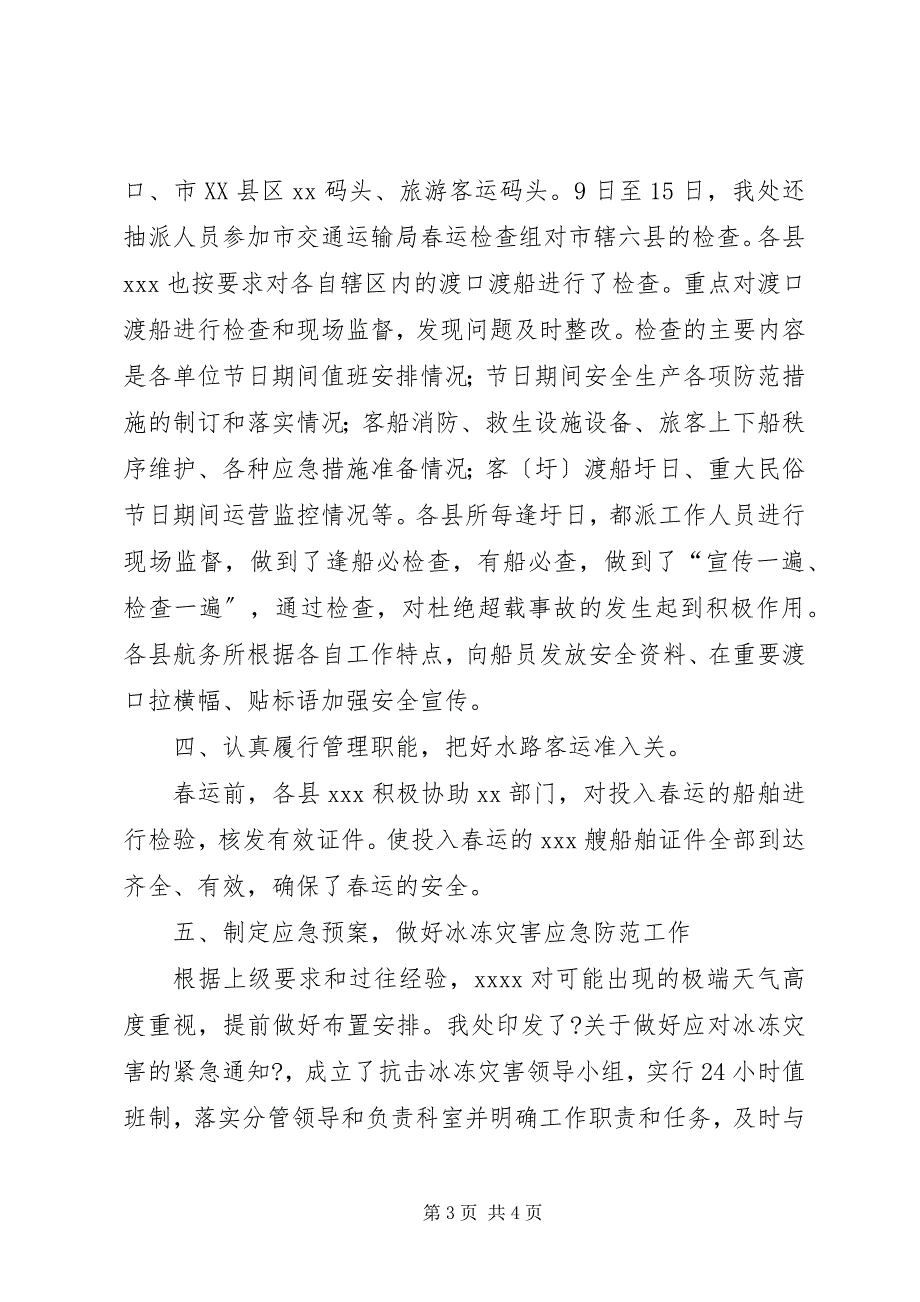 口、市 XX 县区 xx 码头、旅游客运码头。9 日至 15 日，我处还
抽派人员参加市交通运输局春运检查组对市辖六县的检查。各县
xxx 也按要求对各自辖区内的渡口渡船进行了检查。重点对渡口
渡船进行检查和现场监督，发现问题及时整改。检查的主要内容
是各单位节日期间值班安排情况；节日期间安全生产各项防范措
施的制订和落实情况；客船消防、救生设施设备、旅客上下船秩
序维护、各种应急措施准备情况；客〔圩〕渡船圩日、重大民俗
节日期间运营监控情况等。各县所每逢圩日，都派工作人员进行
现场监督，做到了逢船必检查，有船必查，做到了“宣传一遍、
检查一遍〞，通过检查，对杜绝超载事故的发生起到积极作用。
各县航务所根据各自工作特点，向船员发放安全资料、在重要渡
口拉横幅、贴标语加强安全宣传。
四、认真履行管理职能，把好水路客运准入关。
春运前，各县 xxx 积极协助 xx 部门，对投入春运的船舶进
行检验，核发有效证件。使投入春运的 xxx 艘船舶证件全部到达
齐全、有效，确保了春运的安全。
五、制定应急预案，做好冰冻灾害应急防范工作
根据上级要求和过往经验，xxxx 对可能出现的极端天气高
度重视，提前做好布置安排。我处印发了?关于做好应对冰冻灾
害的紧急通知?，成立了抗击冰冻灾害领导小组，实行 24 小时值
班制，落实分管领导和负责科室并明确工作职责和任务，及时与
第 3 页 共 4 页